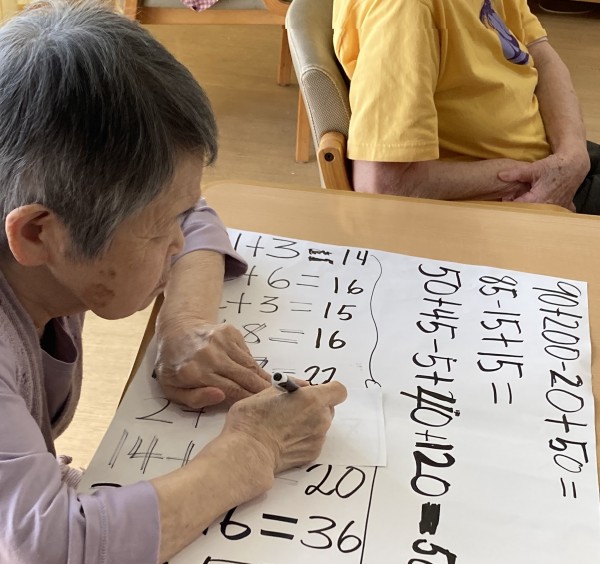 1+3=14
+6=16
+3=15
8=16
22
2+
14+
=20
6=36
90+200-20+50=
85-15+15=
50+45-5+40+120=50